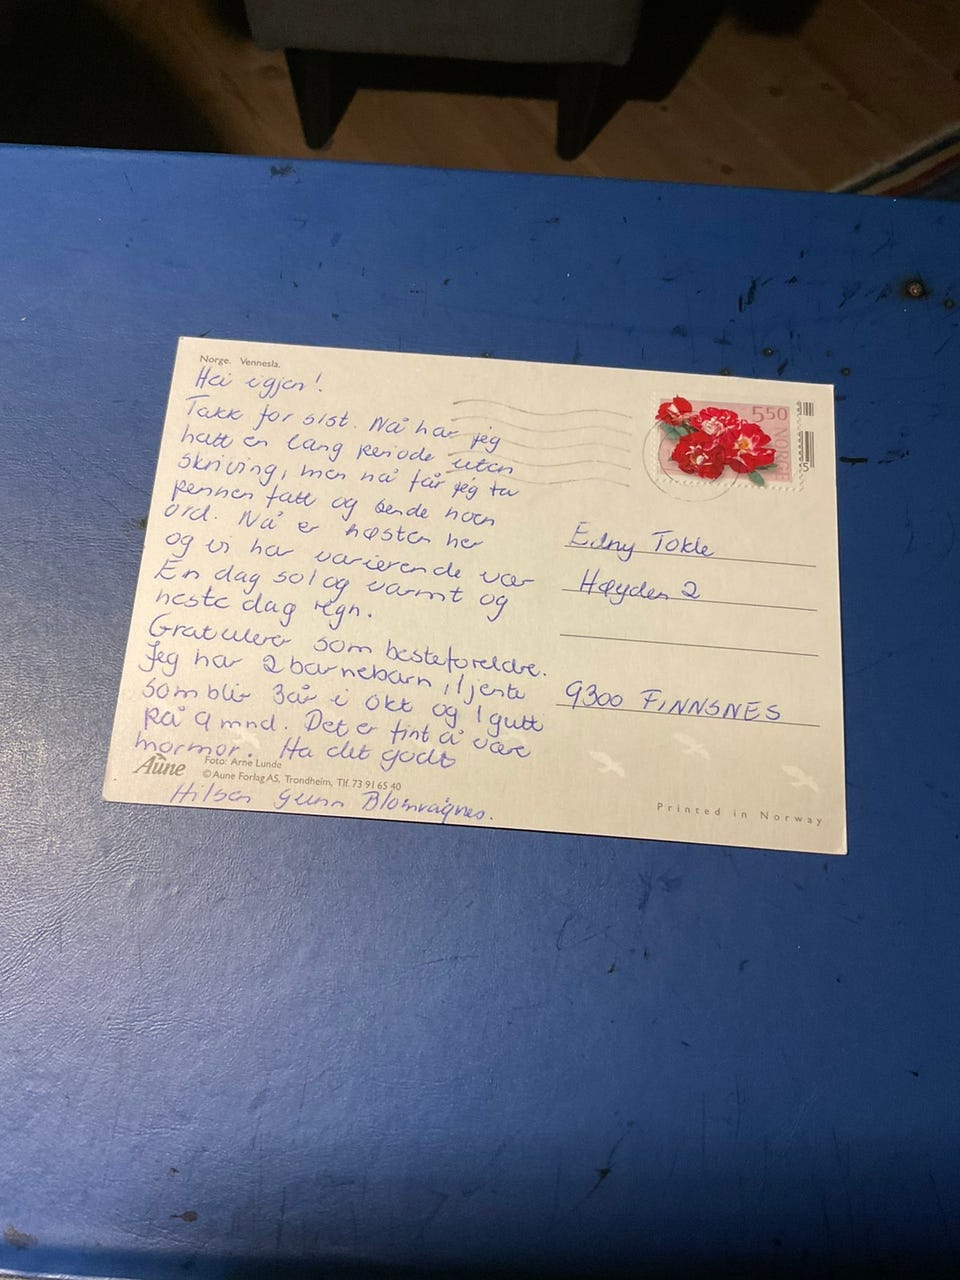 Norge. Vennesla.
Hei igjen!
Takk for sist. Nå har jeg
hatt en lang periode uten
skriving, men nå får jeg ta
pennen fatt og sende noen
ord. Nå er høsten her
og vi har varierende vær
En dag sol og varmt og
neste dag regn.
Gratulerer som besteforeldre.
Jeg har 2 barnebarn, 1 jente
som blir 3 år i okt og 1 gutt
på 9 mnd. Det er fint å være
mormor. Ha det godt
Aune
Foto: Arne Lunde
© Aune Forlag AS, Trondheim, Tlf. 73 91 65 40
Hilsen Gunn Blomvågnes.
550
NORGE
5
Edny Tokle
Høyden 2
9300 FINNSNES
Printed in Norway